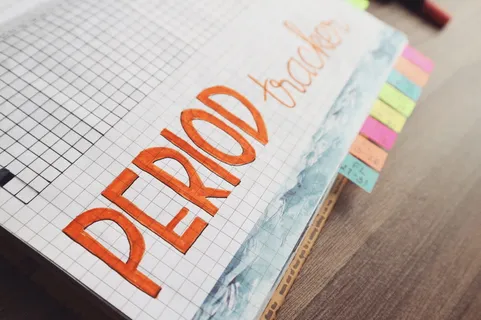 PERIOD tracker